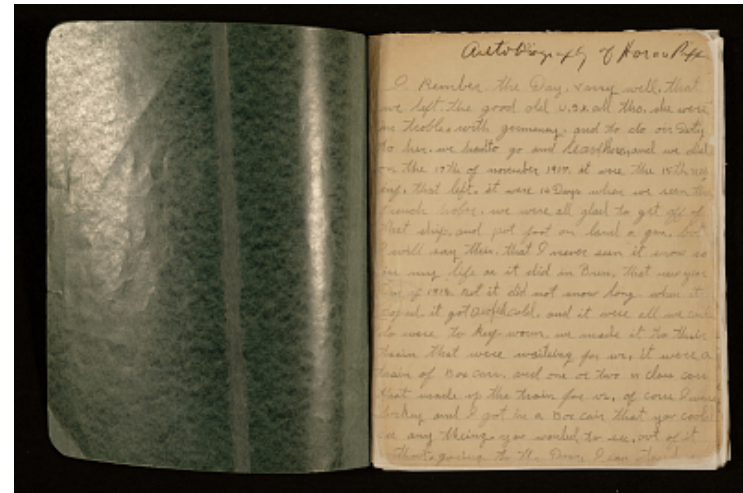 Autobiography of Horace Pippin
I Rember the Day, varry well, that
we left the good old U.S.A. all tho, she were
in trobles with germany. and to do our Duty
to her. we hadto go and and we did
on the 17th of november 1917. it were the 15th
that left, it were 14 Days when we seen the
french, we were all glad to get off of
that ship, and put foot on land a gan, but
I will say this, that I never seen it snow as
in my life as it did in Brest, that new year
Day of 1918. But it did not snow long. when it
it got cold, and it were all we could
do were to keep worm, we made it to their
train that were waiteing for us, it were a
train of Box cars, and one or two class cars
that made up the train for us, of corse I were
luckey and I got in a Box car that you could
see any theing you wanted to see, out of it